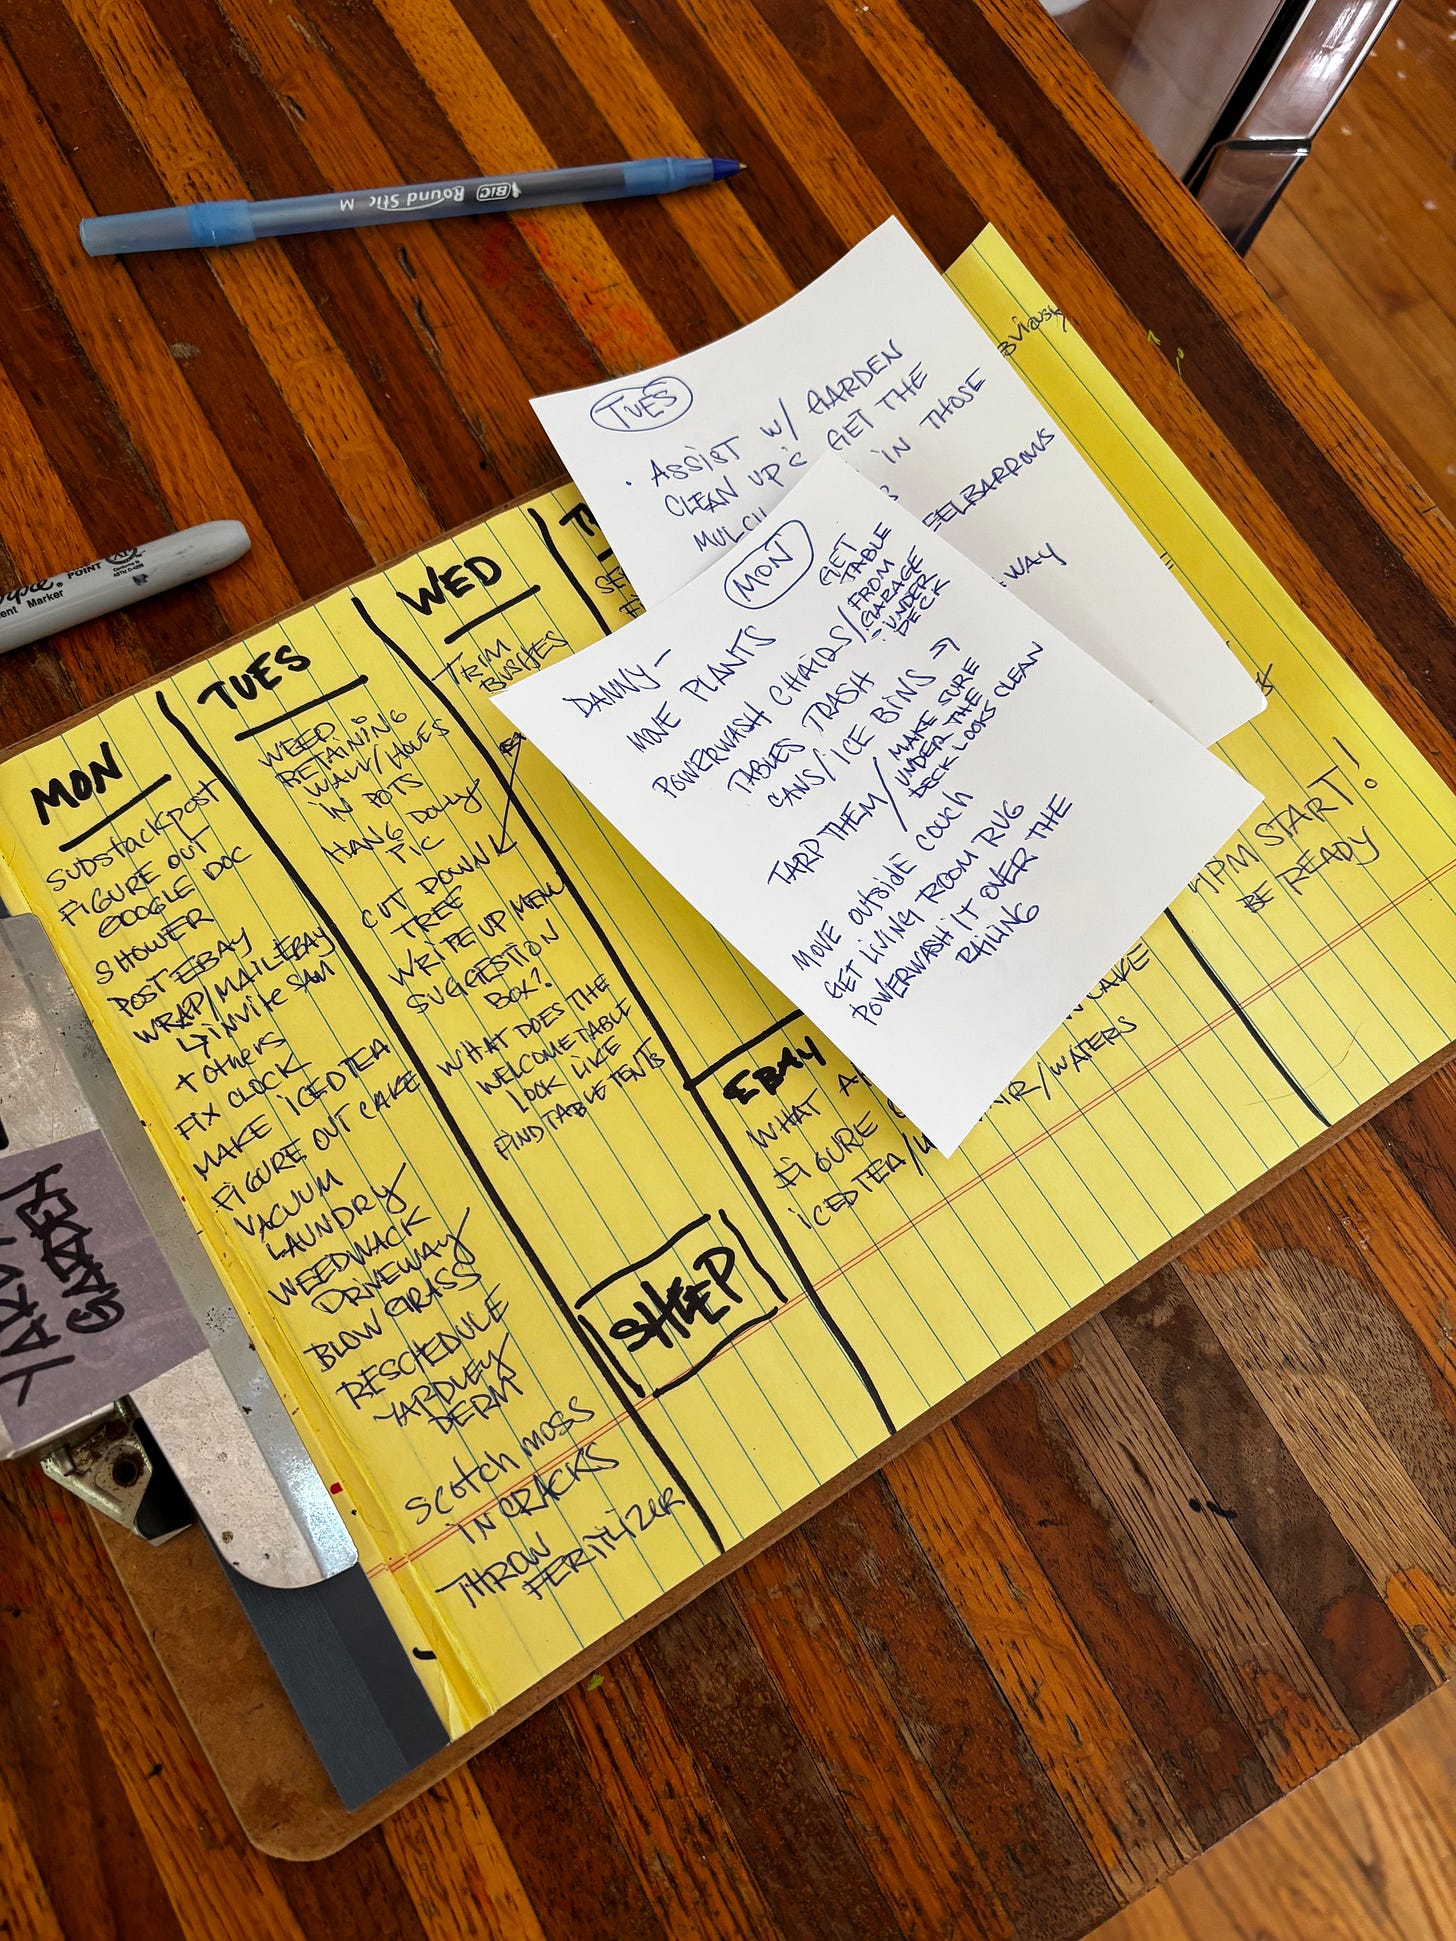 BIC Round Stic M
POINT
Marker
TUES
. ASSIST W/ GARDEN
CLEAN UP & GET THE
IN THOSE
WAY
MON
DANNY—
MOVE PLANTS
POWERWASH CHAIRS/
TABLES TRASH
CANS/ICE BINS →
TARP THEM/
GET
TABLE
FROM
GARAGE
UNDER
DECK
MAKE SURE
UNDER THE
DECK LOOKS CLEAN
MOVE OUTSIDE COUCH
GET LIVING ROOM RUG
POWERWASH IT OVER THE
RAILING
MON
SUBSTACK POST
FIGURE OUT
GOOGLE DOC
SHOWER
POST EBAY
WRAP/MAIL EBAY
↳ INVITE SAM
+ OTHERS
FIX CLOCK
MAKE ICED TEA
FIGURE OUT CAKE
VACUUM
LAUNDRY
WEEDWACK
DRIVEWAY
BLOW GRASS
RESCHEDULE
YARDLEY
DERM
SCOTCH MOSS
IN CRACKS
THROW
FERITLIZER
TUES
WEED
RETAINING
WALL/HOLES
IN POTS
HANG DOLLY
PIC
CUT DOWN
TREE
WRITE UP MENU
SUGGESTION
BOX?
WHAT DOES THE
WELCOME TABLE
LOOK LIKE
FIND TABLE TENTS
SHEEP
WED
TRIM
BUSHES
EBAY
WHAT
FIGURE
ICED TEA/
/WATERS
CAKE
4PM START!
BE READY
GARDEN